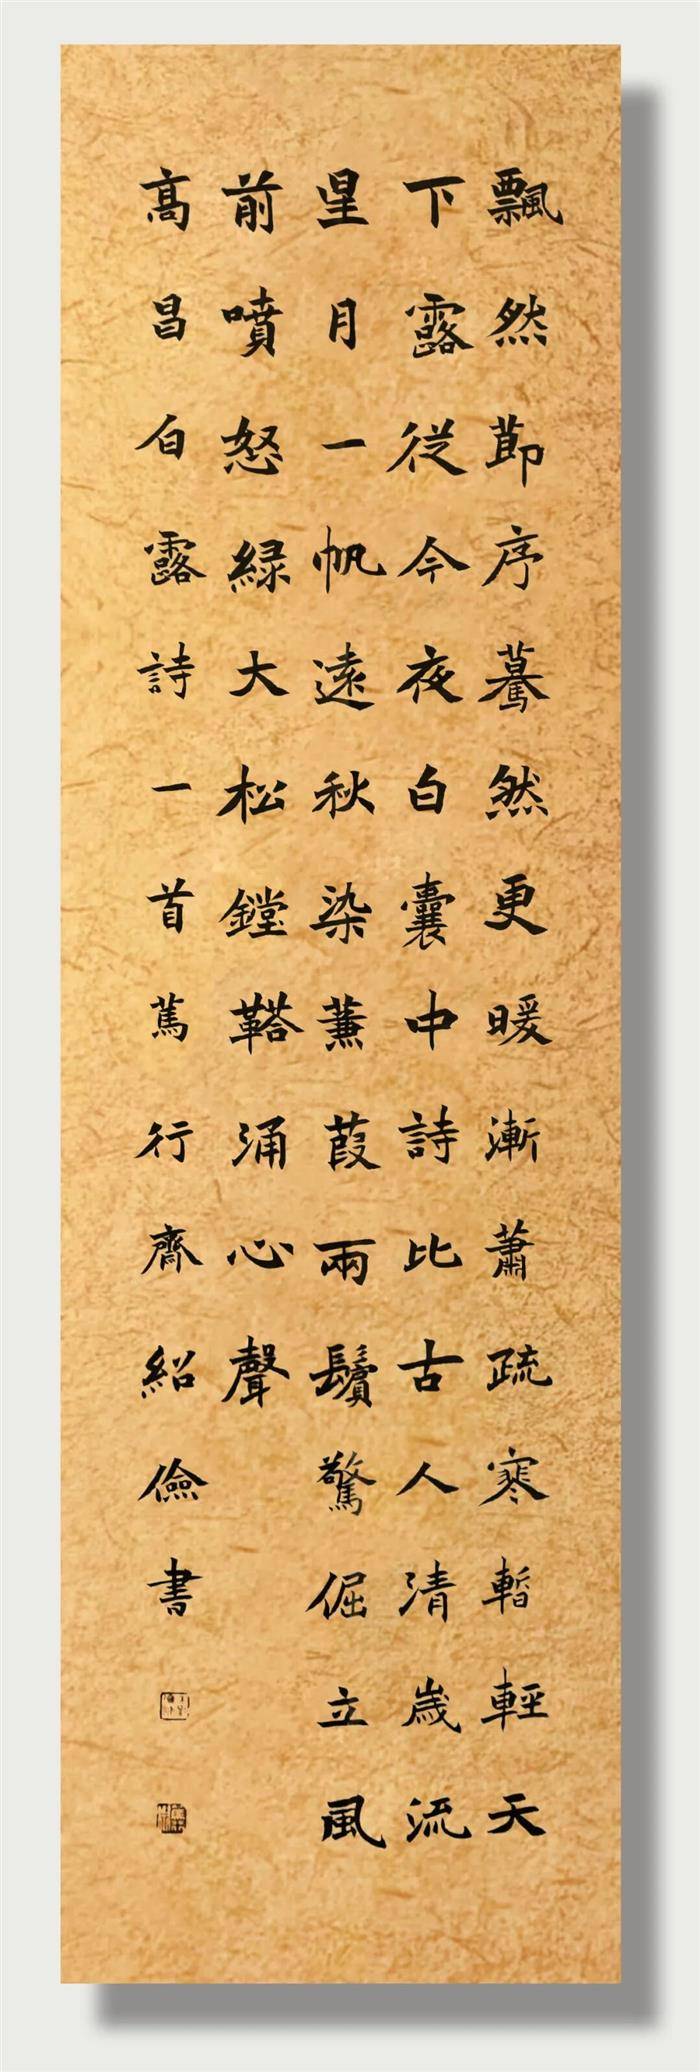 飄然莭序驀然更暖漸蕭疏寒暫輕天
下露従今夜白囊中詩比古人清歲流
星月一帆遠秋染蒹葭兩鬢驚倔立風
前噴怒綠大松鏜鞳涌心聲
髙昌白露詩一首篤行齋紹儉書